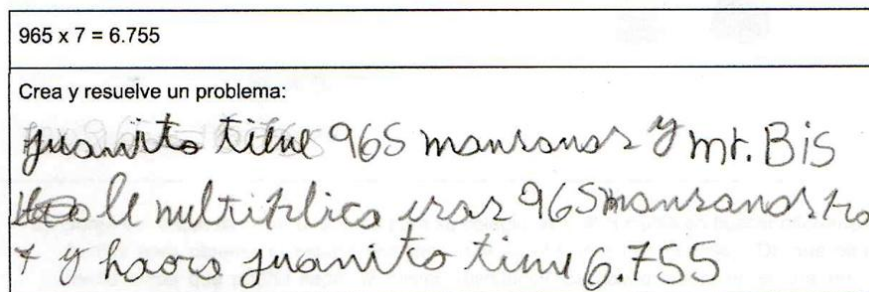 965 x 7 = 6.755
Crea y resuelve un problema:
juanito tiene 965 mansanas y mr. Bis
le multiplica esas 965 mansanas
7 y haora juanito tiene 6.755